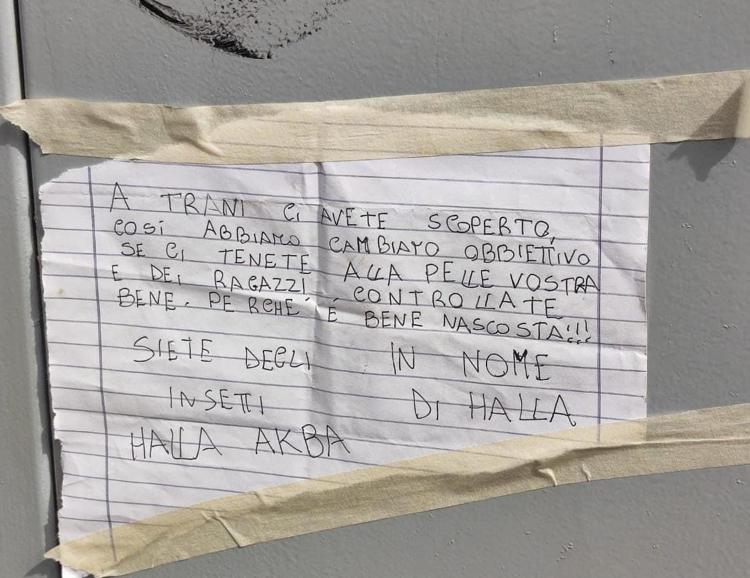 A TRANI CI AVETE SCOPERTO,
COSÍ ABBIAMO CAMBIATO OBBIETTIVO
SE CI TENETE ALLA PELLE VOSTRA
E DEI RAGAZZI CONTROLLATE
BENE. PERCHÉ É BENE NASCOSTA!!!
SIETE DEGLI
INSETTI
IN NOME
DI HALLA
HALLA AKBA